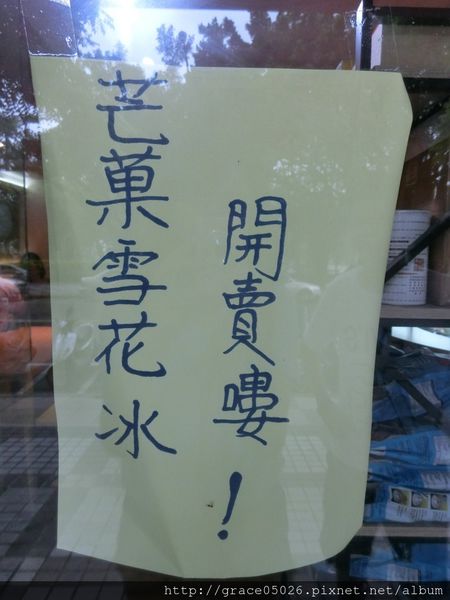 芒菓雪花冰
開賣嘍！
http://grace05026.pixnet.net/album